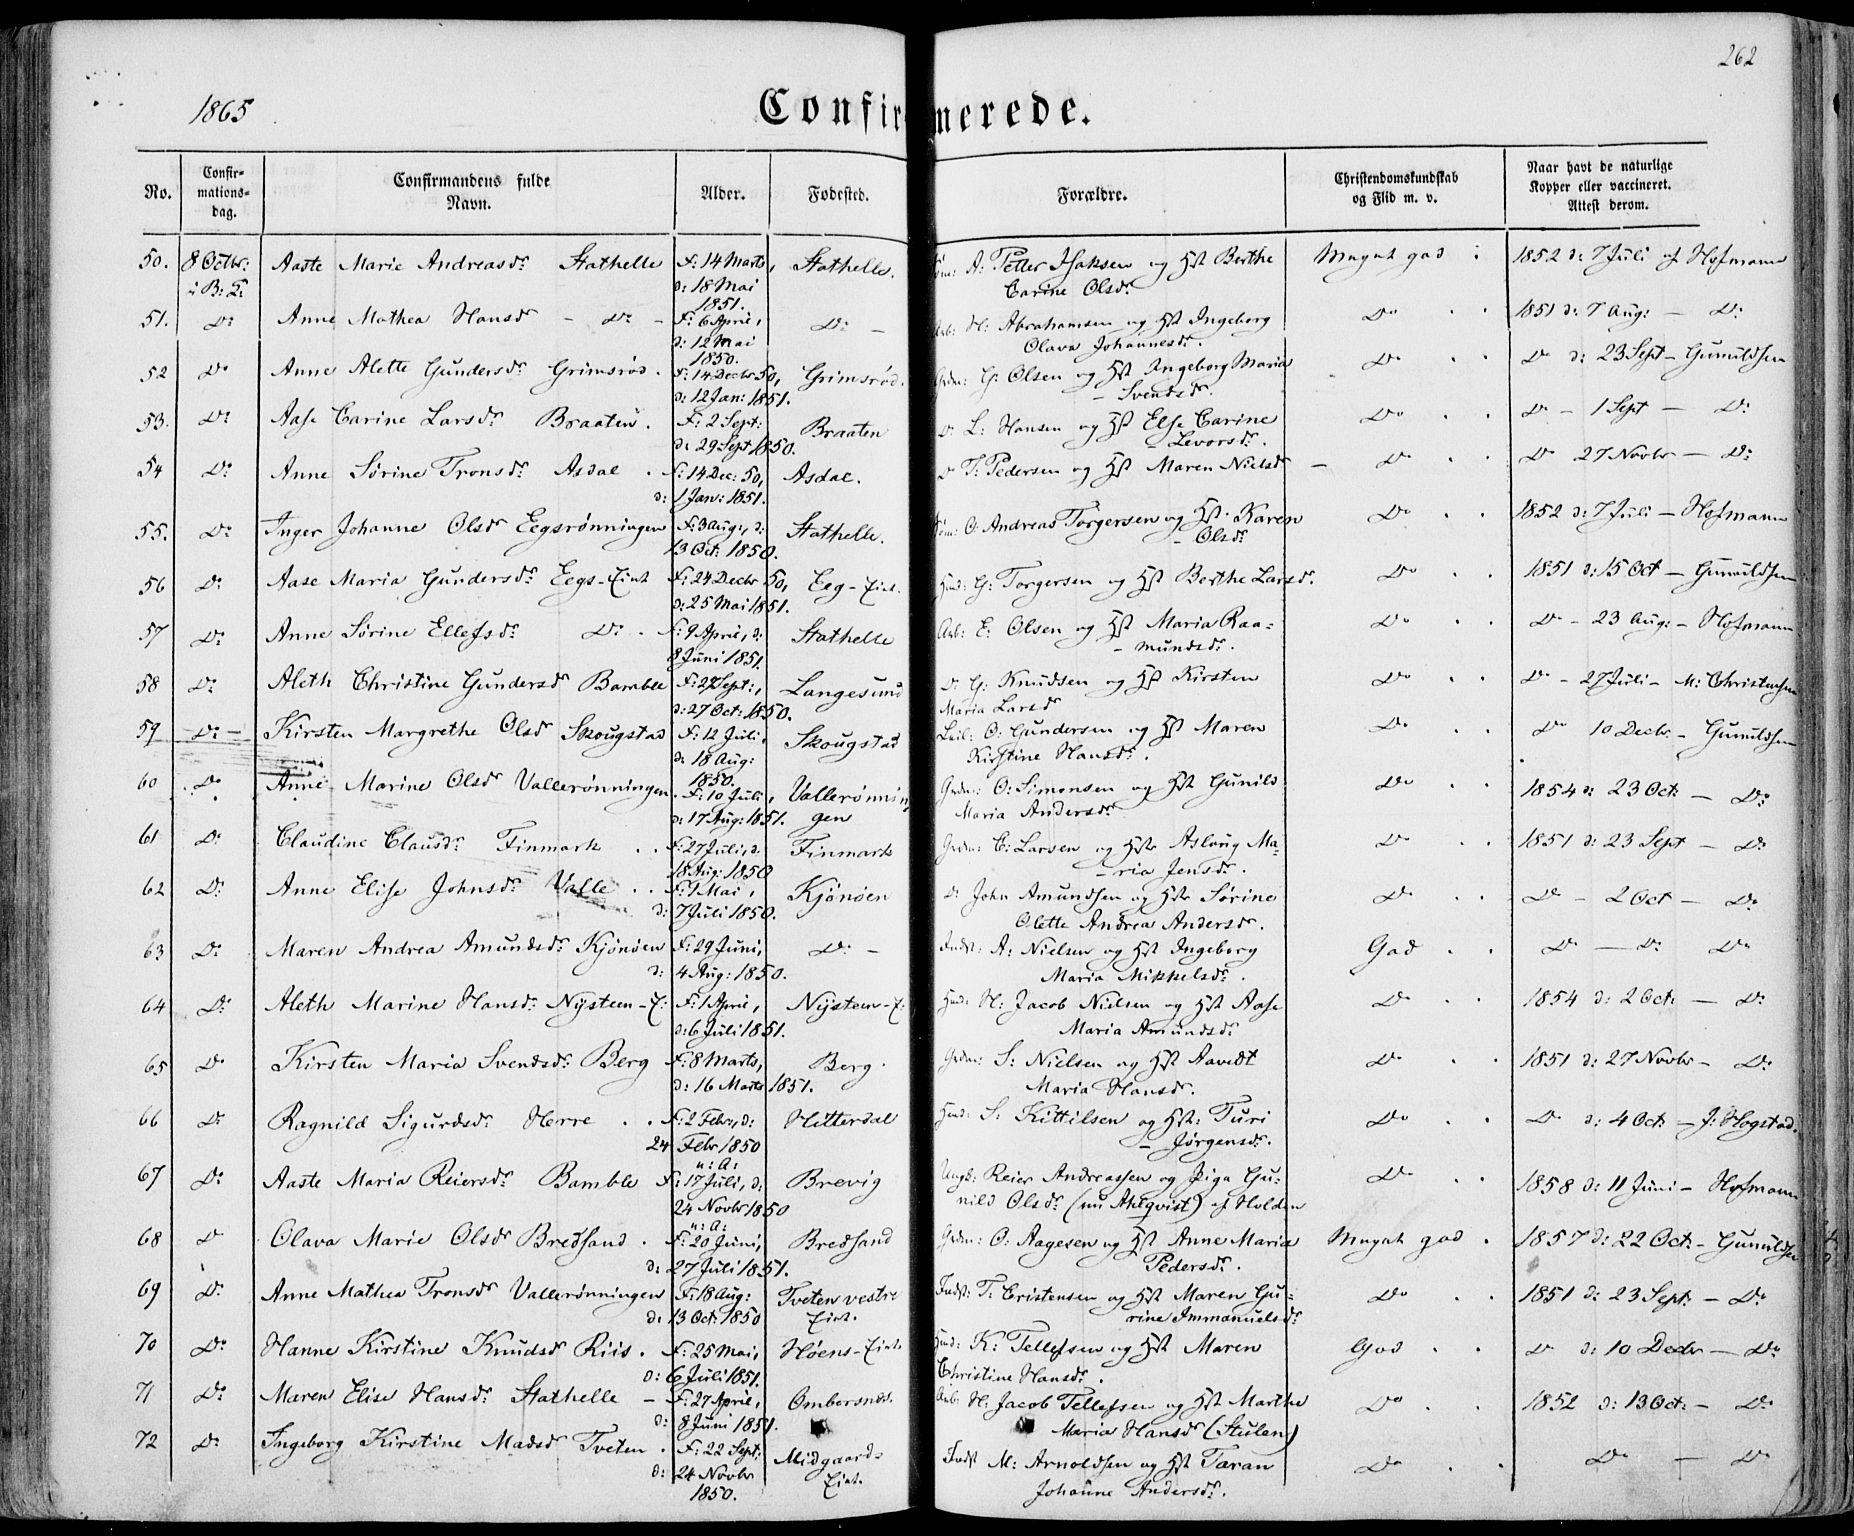 262
1865
Confirmerede.
No. Confir-mations-dag. Confirmandens fulde Navn. Alder. Fødested. Forældre. Christendomskundskab og Flid m. v. Naar havt de naturlige Kopper eller vaccineret. Attest derom.
50. 8 Octbr: Aaste Marie Andreasdr Stathelle F: 14 Marts, Stathelle. A: Petter Isaksen og Hst Berthe Meget god : 1852 d: 7 Juli af Hofmann
i B: K: d: 18 Mai Carine Olsdr
1851.
51. Do: Anne Mathea Hansdr – Do – F: 6 April, Do – Arb: H: Abrahamsen og Hst Ingeborg Do 1851 d: 7 Aug: – Do:
d: 12 Mai Olava Johannesdr.
1850.
52 Do Anne Alette Gundersdr Grimsrød. F: 14 Decbr 50, Grimsrød. Grdm: G: Olsen og Hst Ingeborg Maria Do Do d: 23 Sept – Gunuldsen
d: 12 Jan: 1851. – Svendsdr.
53. Do: Aase Carine Larsdr Braaten. F: 2 Sept: Braaten Do L: Hansen og Hst Else Carine Do Do – 1 Sept – Do:
d: 29 Sept 1850. – Levorsdr.
54 Do: Anne Sørine Tronsdr Asdal. F: 14 Dec: 50, Asdal. Do T: Pedersen og Hst Maren Nielsdr – Do Do 27 Novbr – Do:
d: 1 Jan: 1851.
55. Do: Inger Johanne Olsdr Eegsrønningen F: 3 Aug:, d: Stathelle. O: Andreas Torgersen og Hst. Karen Do 1852 d: 7 Juli – Hofmann
13 Oct: 1850. – Olsdr
56 Do: Aase Maria Gundersdr Eegs-Eiet F: 24 Decbr 50, Eeg-Eiet. Husm: G: Torgersen og Hst Berthe Larsd. Do 1851 d: 15 Oct – Gunuldsen
d: 25 Mai 1851.
57 Do: Anne Sørine Ellefsdr Do: . F: 9 April, d: Stathelle Arb: E: Olsen og Hst Maria Raa- Do Do – 23 Aug: – Hofmann
8 Juni 1851. – mundsdr.
58 Do: Aleth Christine Gundersd Bamble F: 27 Sept:, Langesund Do: G: Knudsen og Hst Kirsten Do Do – 27 Juli – M: Christensen
d: 27 Oct: 1850. Maria Larsdr
59 Do: – Kirsten Margrethe Olsd Skougstad F: 12 Juli, Skougstad Leil: O: Gundersen og Hst Maren Do Do 10 Decbr – Gunuldsen
d: 18 Aug: Kirstine Hansdr.
1850.
60 Do Anne Marine Olsdr Vallerønningen. F: 10 Juli, Vallerønnin Grdm: O: Simonsen og Hst Gunild Do 1854 d: 23 Oct: – Do:
d: 17 Aug: 1851. gen Maria Andersdr
61 Do: Claudine Clausdr Finmark . . F: 27 Juli, d: Finmark Grdm: C: Larsen og Hstr Aslaug Ma- Do 1851 d: 23 Sept – Do
18 Aug: 1850 – ria Jensdr.
62 Do: Anne Elise Johnsdr Valle . . F: 1 Mai, Kjønøen Do John Amundsen og Hstr Sørine Do Do – 2 Oct – Do:
d: 7 Juli 1850. Olette Andrea Andersdr.
63 Do: Maren Andrea Amundsdr Kjønøen F: 29 Juni, Do: – Indst: A: Nielsen og Hst Ingeborg God . . Do – Do: Do
d: 4 Aug: 1850. Maria Mikkelsdr.
64 Do: Aleth Marine Hansdr Nysteen-E: F: 1 April, Nysteen-E: Husm: H: Jacob Nielsen og Hst Aase Do 1854 d: 2 Oct: – Do:
d: 6 Juli 1851. Maria Amundsdr
65 Do Kirsten Maria Svendsdr Berg F: 8 Marts, Berg. Grdm: S: Nielsen og Hst Aavedt Do 1851 d: 27 Novbr – Do:
d: 16 Marts 1851. Maria Hansd.
66 Do Ragnild Sigurdsdr Herre . . F: 2 Febr, d: Hitterdal Husm: S: Kittilsen og Hst: Turi Do Do d: 4 Oct – J: Hogstad.
24 Febr 1850 – Jørgensdr.
u: A:
67 Do: Aaste Maria Reiersdr Bamble F: 17 Juli, d: Brevig Ungk: Reier Andreassen og Piga Gu- Do 1858 d: 11 Juni – Hofmann
24 Novbr 1850 nild Olsdr (nu Ahlqvist) af Holden
u: A:
68 Do Olava Marie Olsdr Bredsand. F: 20 Juni, Bredsand Grdm: O: Aagesen og Hst Anne Maria Meget god . 1857 d: 22 Oct: – Gunuldsen
d: 27 Juli 1851. Pedersdr.
69 Do: Anne Mathea Tronsdr Vallerønningen F: 18 Aug: Tveten vestre Indst: T: Cristensen og Hst Maren Gu- Do 1851 d: 23 Sept: – Do
d: 13 Oct: 1850 Eiet. rine Immanuelsdr
70 Do: Hanne Kirstine Knudsd Riis. F: 25 Mai, Høens-Eiet Husm: K: Tellefsen og Hst Maren God . . Do d: 10 Decbr – Do
d: 6 Juli 1851. Christine Hansdr.
71 Do: Maren Elise Hansdr Stathelle – F: 27 April, Ombersnæs. Arb: H: Jacob Tellefsen og Hst Marthe Do 1852 d: 13 Oct: – Do:
d: 8 Juni 1851. Maria Hansdr (Stulen)
72 Do: Ingeborg Kirstine Madsd Tveten . F: 22 Sept: Midgaards- Indst M: Arnoldsen og Hst Taran Do Do – Do
d: 24 Novbr Eiet. Johanne Andersdr.
1850.